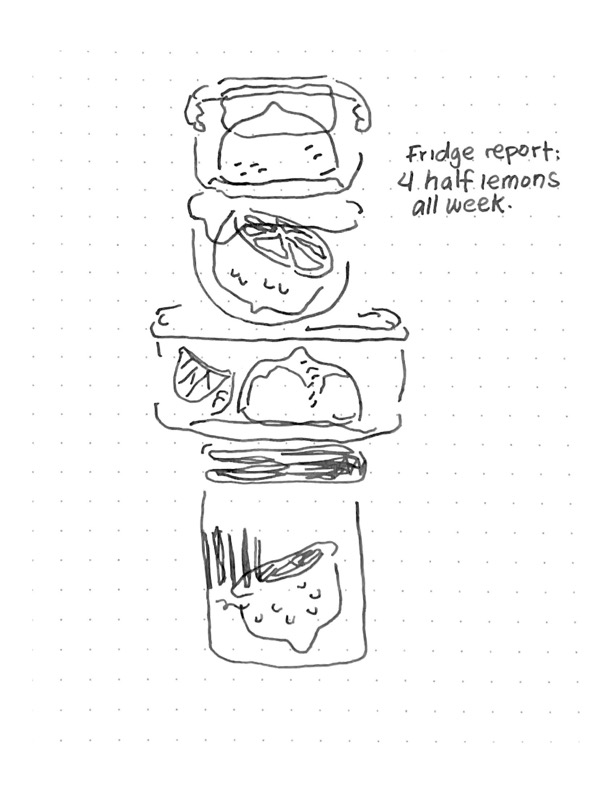 Fridge report:
4 half lemons
all week.